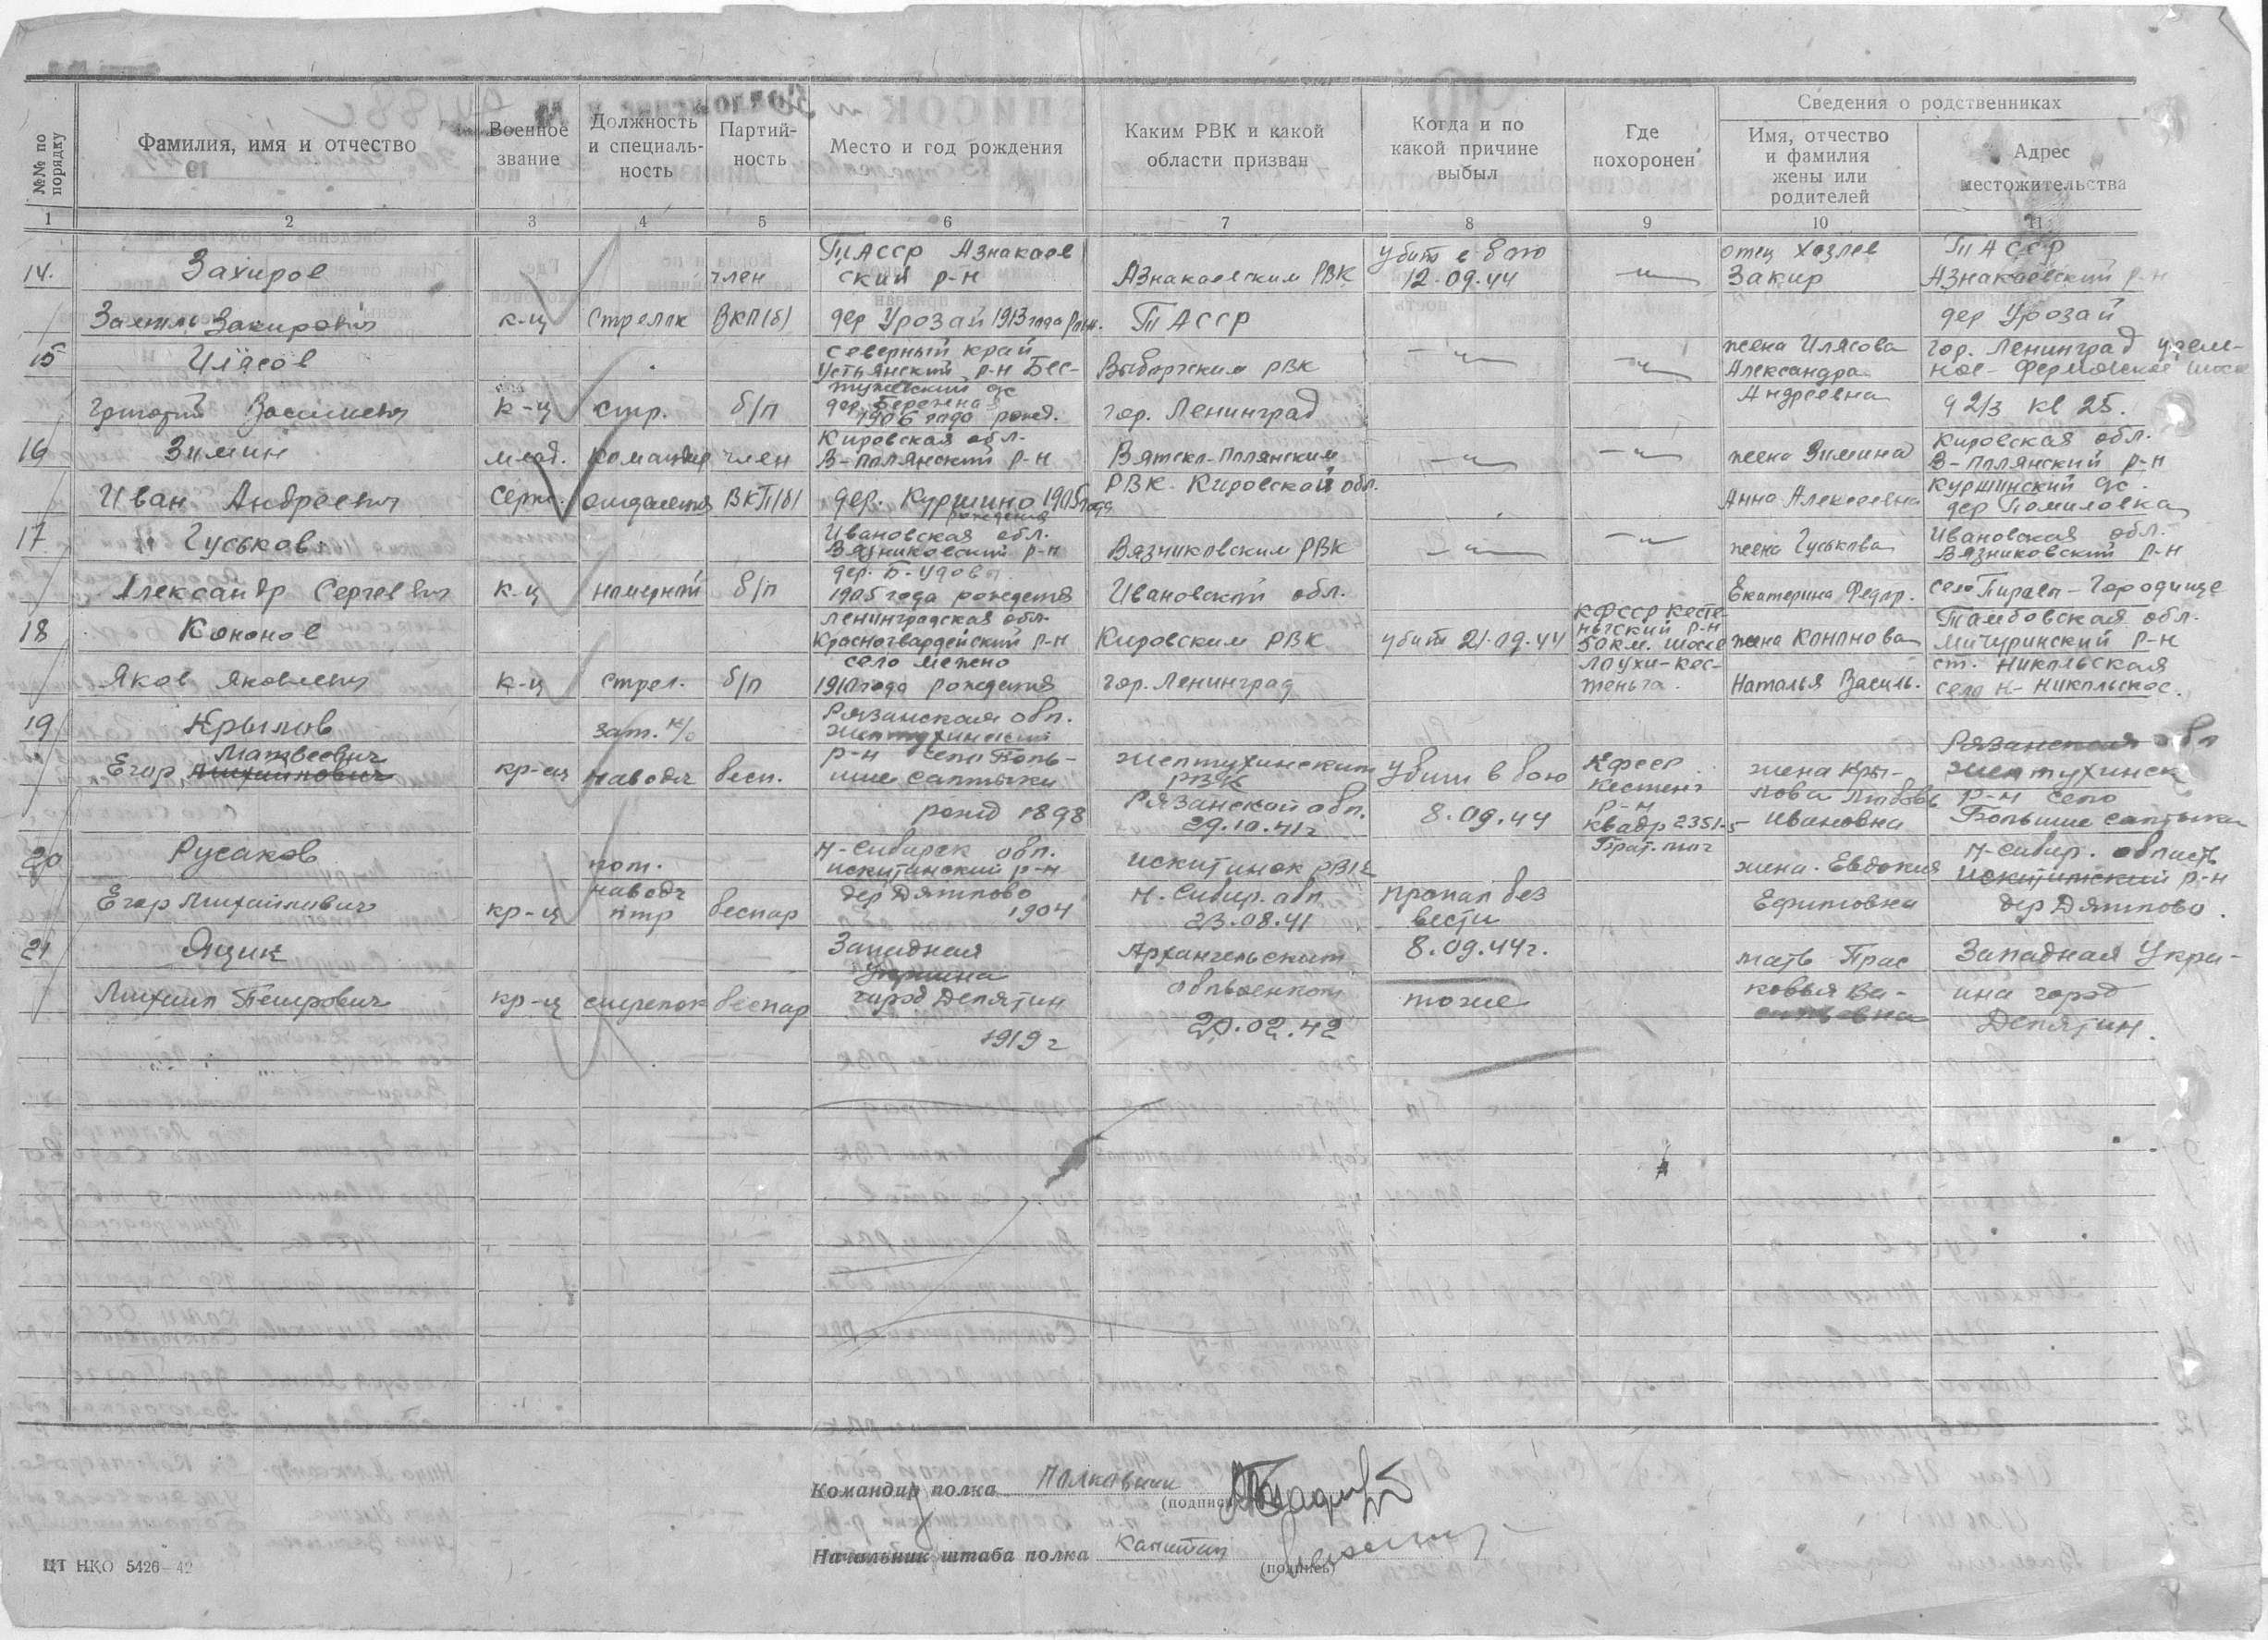 №№ по порядку
Фамилия, имя и отчество
Военное звание
Должность и специаль-
ность
Партий-
ность
Место и год рождения
Каким РВК и какой
области призван
Когда и по
какой причине
выбыл
Где
похоронен
Сведения о родственниках
Имя, отчество
и фамилия
жены или
родителей
Адрес
местожительства
1 2 3 4 5 6 7 8 9 10 11
14. Захиров
Закирович
к-ц
стрелок
член
ВКП(б)
ТАССР Азнакаев
ский р-н
дер Урозай 1913 года рожд.
Азнакаевским РВК
ТАССР
убит в бою
12.09.44
—"—
отец
Закир
ТАССР
Азнакаевский р-н
дер Урозай
15 Илясов
Григорий Васильевич
к-ц
стр.
б/п
Северный край
Устьянский р-н Бес-
тужевский с/с
дер. Бережная
1906 года рожд.
Выборгским РВК
гор. Ленинград
—"—
—"—
жена Илясова
Александра
Андреевна
гор. Ленинград
2/3 кв 25.
16 Зимин
Иван Андреевич
млад.
серж.
командир
отделения
член
ВКП(б)
Кировская обл.
В-Полянский р-н
дер. Куршино 1905 года
рождения
Вятско-Полянским
РВК Кировской обл.
—"—
—"—
жена Зимина
Анна Алексеевна
Кировская обл.
В-Полянский р-н
Куршинский с/с.
дер Помиловка
17 Гуськов
Александр Сергеевич
к-ц
номерной
б/п
Ивановская обл.
Вязниковский р-н
дер. Б-Удовы
1905 года рождения
Вязниковским РВК
Ивановской обл.
—"—
—"—
жена Гуськова
Екатерина Федор.
Ивановская обл.
Вязниковский р-н
село Пировы-Городище
18 Кононов
Яков Яковлевич
к-ц
стрел.
б/п
Ленинградская обл.
Красногвардейский р-н
село Межно
1910 года рождения
Кировским РВК
гор. Ленинград
убит 21.09.44
КФССР Кесте-
ньгский р-н
50 км. шоссе
Лоухи-Кес-
теньга.
жена Кононова
Наталья Василь.
Тамбовская обл.
Мичуринский р-н
ст. Никольская
село Н-Никольское.
19 Крылов
Матвеевич
Егор Михайлович
кр-ец
зам. к/о
наводч
бесп.
Рязанская обл.
Желтухинский
р-н село Боль-
шие Салтыки
рожд 1898
Желтухинским
РВК
Рязанской обл.
29.10.41г
Убит в бою
8.09.44
КФССР
Кестенг
р-н
квадр 2351-5
Брат. мог
жена Кры-
лова Любовь
Ивановна
Рязанская обл
Желтухинск
р-н село
Большие Салтыки
20 Русаков
Егор Михайлович
кр-ц
пом.
наводч
птр
беспар
Н-Сибирск обл.
Искитимский р-н
дер Дятлово
1904
Искитимск РВК
Н. Сибир. обл
23.08.41
пропал без
вести
8.09.44г.
жена Евдокия
Ефимовна
Н-Сибир. область
Искитимский р-н
дер Дятлово.
21 Ящик
Михаил Петрович
кр-ц
стрелок
беспар
Западная
Украина
город Делятин
1919г
Архангельским
облвоенком
20.02.42
тоже
мать Прас
ковья Ва-
сильевна
Западная Укра-
ина город
Делятин.
Командир полка Полковник
(подпись)
Начальник штаба полка Капитан
(подпись)
ЦТ НКО 5426—42